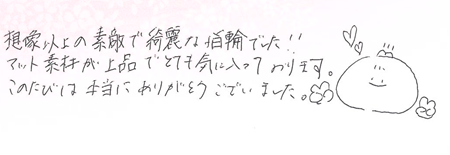 想像以上の素敵で綺麗な指輪でした!!
マット素材が上品でとても気に入っております。
このたびは本当にありがとうございました。